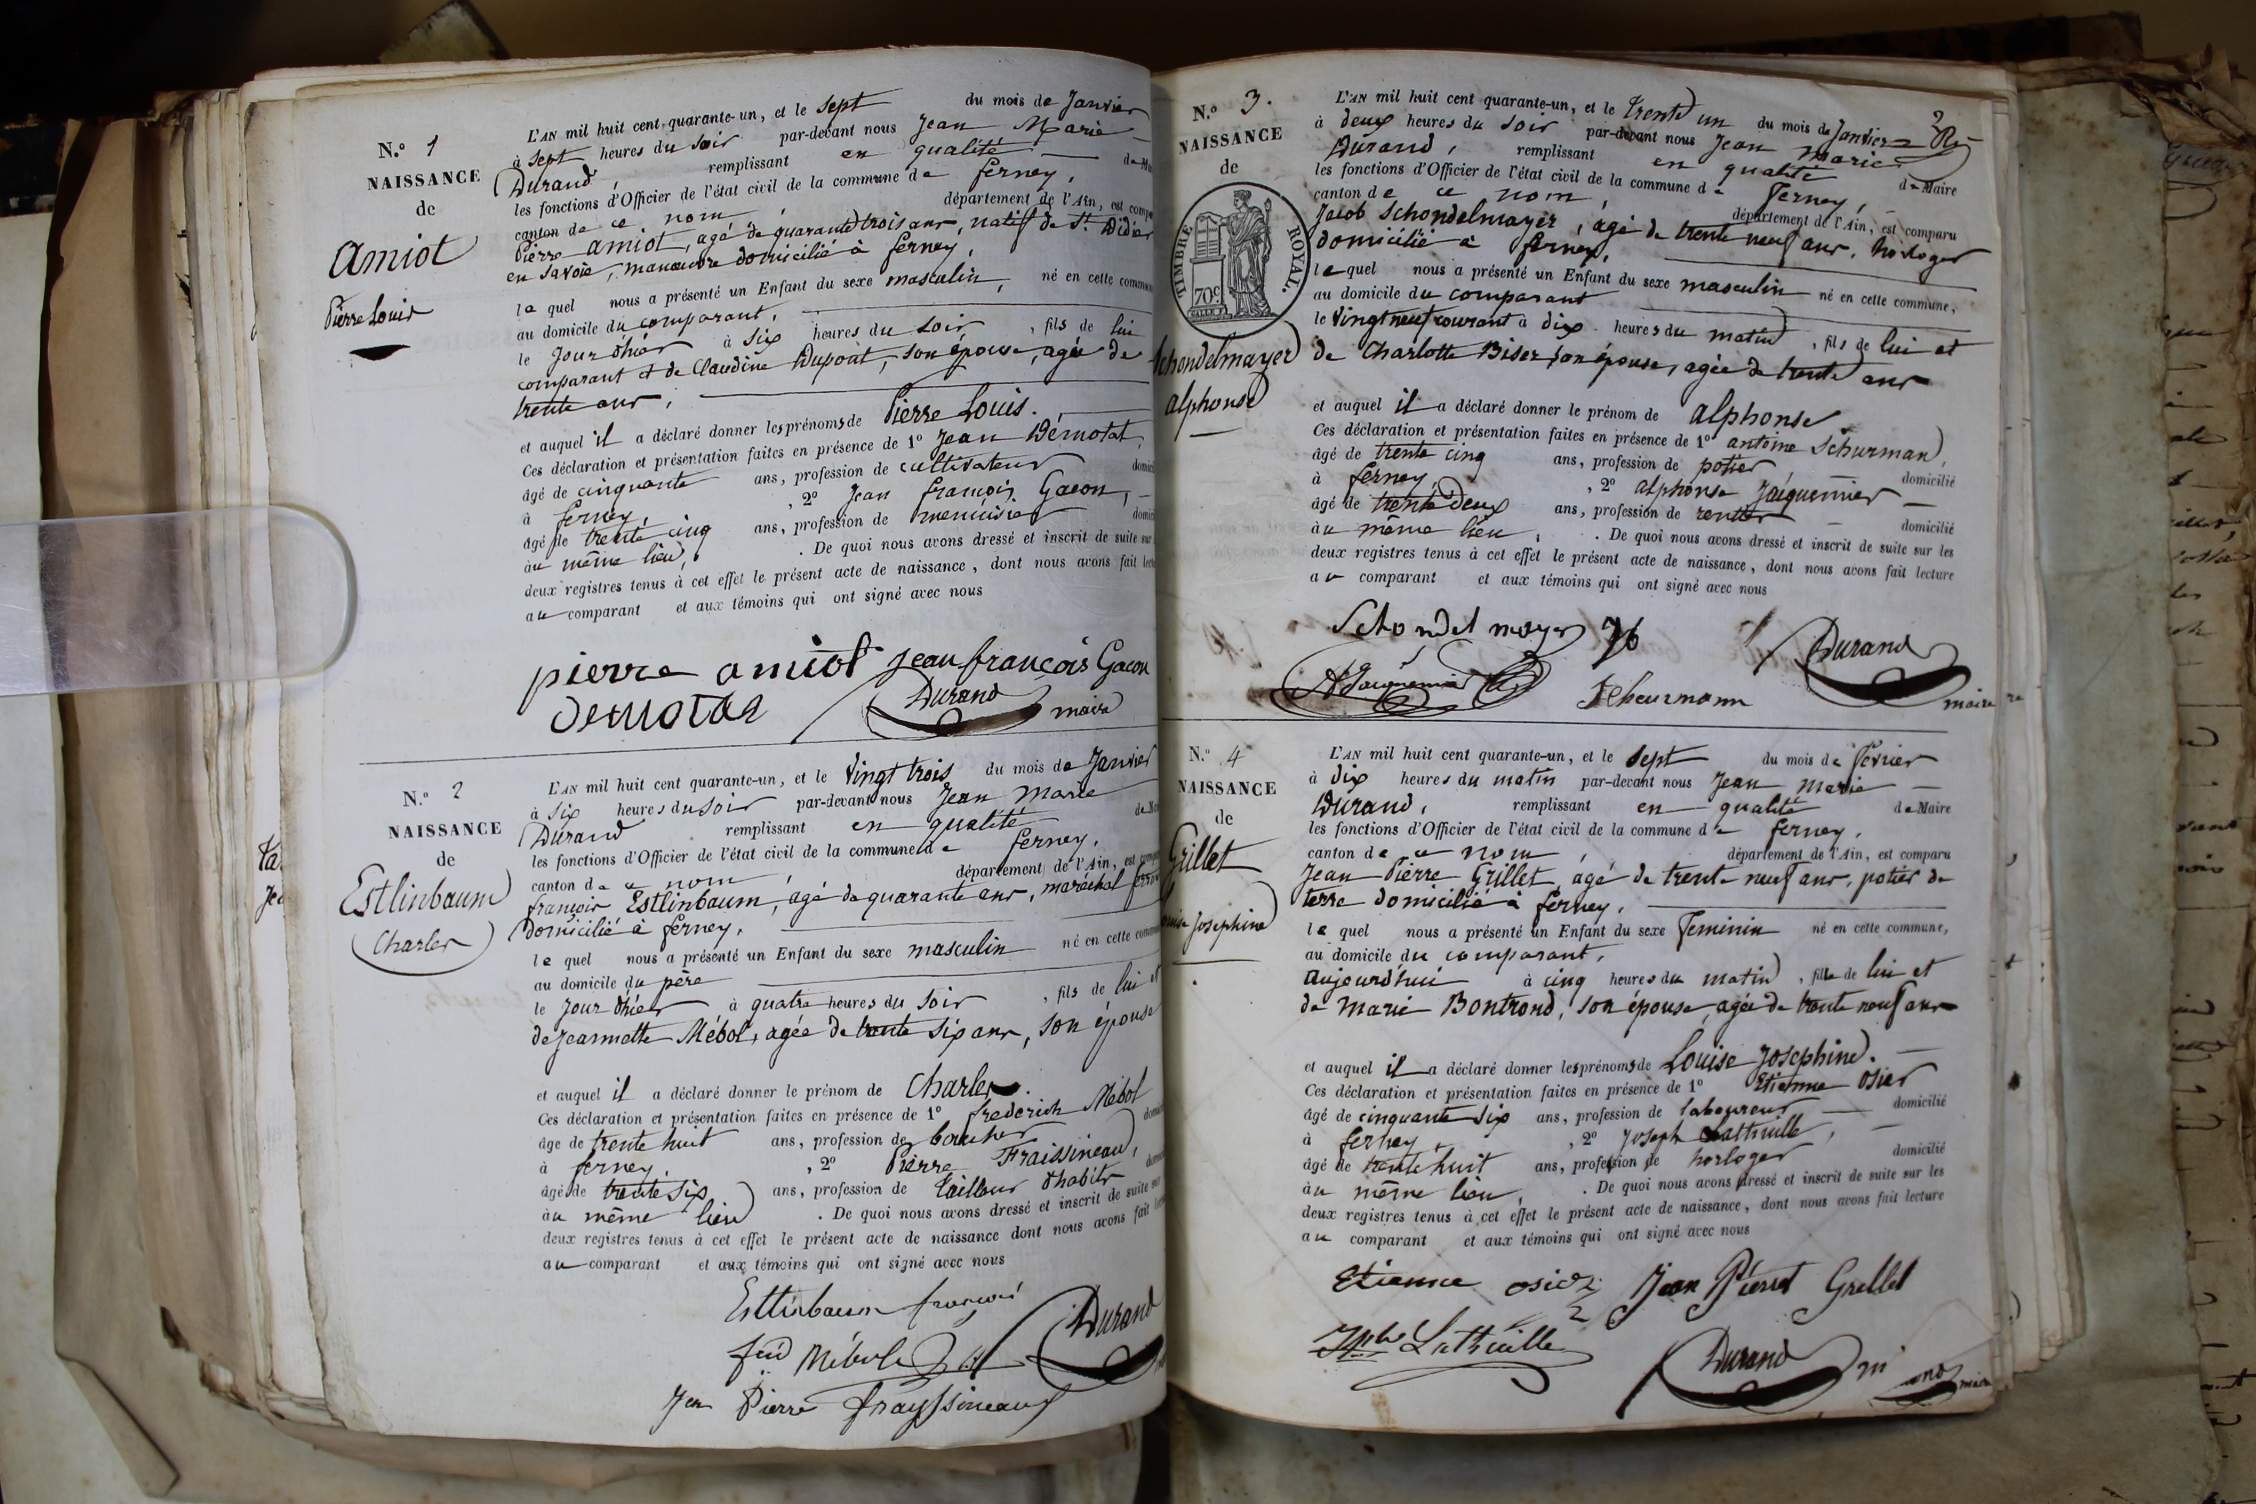 N.o 1
NAISSANCE
de
Amiot
Pierre Louis
L'AN mil huit cent quarante-un, et le sept du mois de Janvier
à sept heures du soir par-devant nous Jean Marie
Durand, remplissant en qualité de
les fonctions d'Officier de l'état civil de la commune de ferney,
canton de ce nom département de l'Ain, est
Pierre amiot, agé de quarante trois ans, natif de St. Didier
en Savoie, manœuvre domicilié à ferney,
le quel nous a présenté un Enfant du sexe masculin, né en cette
au domicile du comparant,
le Jour d'hier à six heures du soir, fils de lui
comparant et de Claudine Dupont, son épouse, agée de
trente ans,
et auquel il a déclaré donner les prénoms de Pierre Louis.
Ces déclaration et présentation faites en présence de 1o Jean Démotat,
âgé de cinquante ans, profession de cultivateur
à ferney, , 2o Jean françois Gacon,
âgé de trente cinq ans, profession de menuisier
à au même lieu, . De quoi nous avons dressé et inscrit de suite sur
deux registres tenus à cet effet le présent acte de naissance, dont nous avons fait
au comparant et aux témoins qui ont signé avec nous
pierre amiot Jean françois Gacon
Durand maire
N.o 2
NAISSANCE
de
Estlinbaum
Charles
L'AN mil huit cent quarante-un, et le Vingt trois du mois de Janvier
à six heures du soir par-devant nous Jean Marie
Durand remplissant en qualité de
les fonctions d'Officier de l'état civil de la commune de ferney,
canton de ce nom département de l'Ain, est
françois Estlinbaum, âgé de quarante ans, maréchal
domicilié à ferney,
le quel nous a présenté un Enfant du sexe masculin né en cette
au domicile du père
le Jour d'hier à quatre heures du soir, fils de lui et
de Jeannette Mébol, agée de trente six ans, son épouse
et auquel il a déclaré donner le prénom de Charles.
Ces déclaration et présentation faites en présence de 1o frederich Mébol
âgé de trente huit ans, profession de boucher
à ferney , 2o Pierre Fraissineau,
âgé de trente six ans, profession de tailleur d'habits
à au même lieu . De quoi nous avons dressé et inscrit de suite sur
deux registres tenus à cet effet le présent acte de naissance dont nous avons fait
au comparant et aux témoins qui ont signé avec nous
Estlinbaum françois
Mébole Durand
Pierre frayssineaux
N.o 3.
NAISSANCE
de
TIMBRE ROYAL.
70c.
Schondelmayer
alphonse
L'AN mil huit cent quarante-un, et le trente un du mois de Janvier
à deux heures du soir par-devant nous Jean Marie
Durand, remplissant en qualité de Maire
les fonctions d'Officier de l'état civil de la commune de Ferney,
canton de ce nom département de l'Ain, est comparu
Jacob Schondelmayer, âgé de trente neuf ans, horloger
domicilié à ferney,
le quel nous a présenté un Enfant du sexe masculin né en cette commune,
au domicile du comparant
le Vingt neuf courant à dix heures du matin, fils de lui et
de Charlotte Biser, son épouse, agée de trente ans
et auquel il a déclaré donner le prénom de alphonse
Ces déclaration et présentation faites en présence de 1o antoine Schurman,
âgé de trente cinq ans, profession de potier domicilié
à ferney, , 2o alphonse Jaiquemier
âgé de trente deux ans, profession de rentier domicilié
à au même lieu, . De quoi nous avons dressé et inscrit de suite sur les
deux registres tenus à cet effet le présent acte de naissance, dont nous avons fait lecture
au comparant et aux témoins qui ont signé avec nous
Schondelmayer Durand
Scheurmann maire
N.o 4
NAISSANCE
de
Grillet
Louise Josephine
L'AN mil huit cent quarante-un, et le sept du mois de Février
à dix heures du matin par-devant nous Jean Marie
Durand, remplissant en qualité de Maire
les fonctions d'Officier de l'état civil de la commune de ferney,
canton de ce nom, département de l'Ain, est comparu
Jean Pierre Grillet, âgé de trente neuf ans, potier de
terre domicilié à ferney,
le quel nous a présenté un Enfant du sexe Feminin né en cette commune,
au domicile du comparant,
aujourd'hui à cinq heures du matin, fille de lui et
de Marie Bontrond, son épouse, agée de trente neuf ans
et auquel il a déclaré donner les prénoms de Louise Josephine.
Ces déclaration et présentation faites en présence de 1o Etienne Osier
âgé de cinquante six ans, profession de laboureur domicilié
à ferney , 2o Joseph Lathuille,
âgé de trente huit ans, profession de horloger domicilié
à au même lieu, . De quoi nous avons dressé et inscrit de suite sur les
deux registres tenus à cet effet le présent acte de naissance, dont nous avons fait lecture
au comparant et aux témoins qui ont signé avec nous
Etienne osier Jean Pierre Grellet
Lathuille
Durand